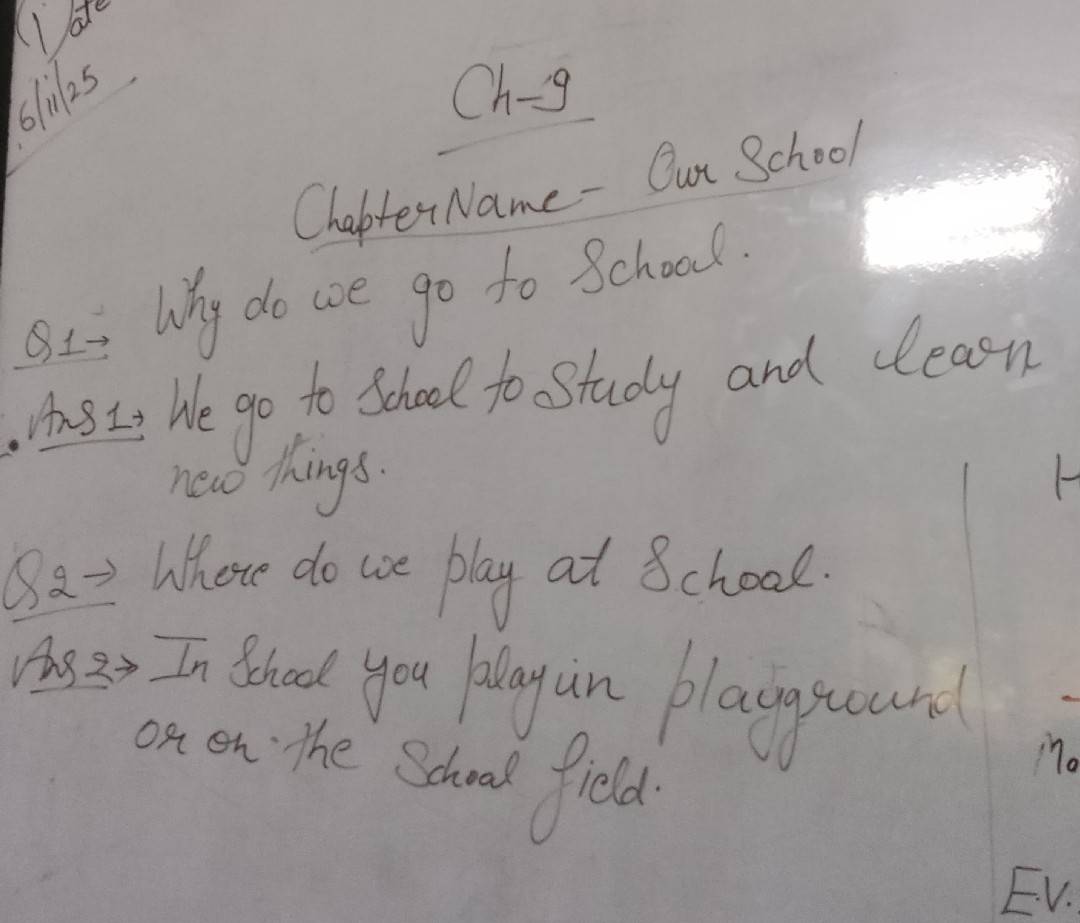 Date
6/11/25
Ch-9
Chapter Name - Our School
Q1→ Why do we go to School.
Ans 1→ We go to School to Study and learn
new things.
Q2→ Where do we play at School.
Ans 2→ In School you play in playground
or on the School field.
E.V.